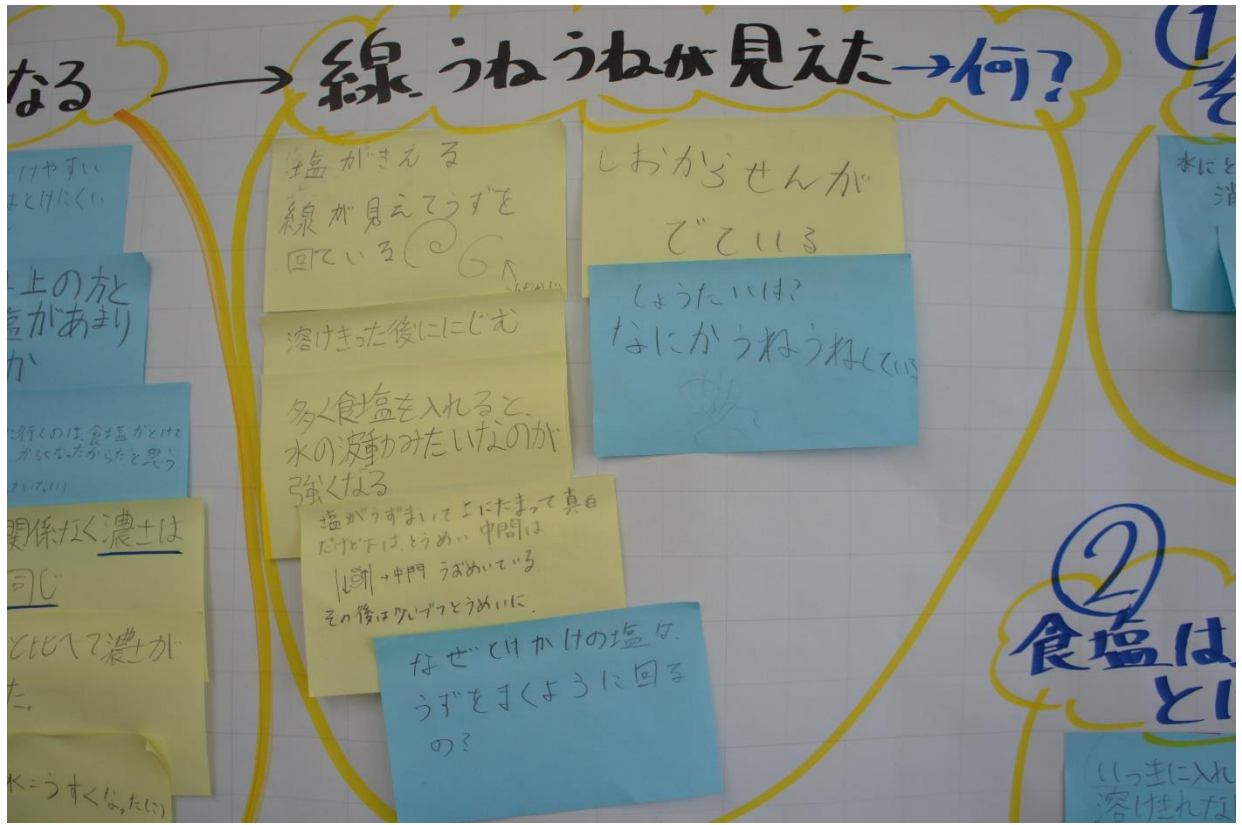 なる
→線、うねうねが見えた→何?
①
そ
けやすい
はとけにくい
上の方と
塩があまり
か
に行しのは、食塩がとけて
からくなったからだと思う
関係なく濃士は
同じ
と比べて濃士が
た。
水=うすくなった(に)
塩がきえる
線が見えてうずを
回ている
溶けきった後ににじむ
多く食塩を入れると、
水の波動みたいなのが
強くなる
塩がうずまいて上にたまって真白
だけど下は、とうめい 中間は
→中門 うずめいている
その後は少しづつとうめいに.
なぜとけかけの塩は、
うずをまくように回る
の?
しおからせんが
でている
しょうたいは?
なにかうねうねしている
水にと
消
②
食塩は
とけ
いっきに入れ
溶けきれな